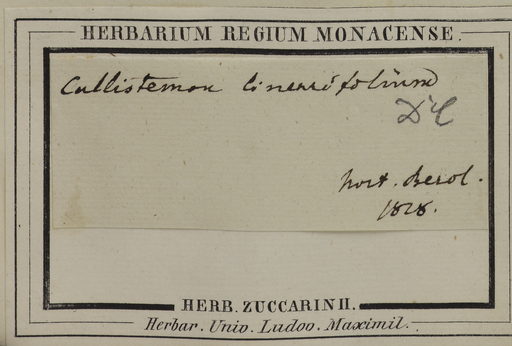 HERBARIUM REGIUM MONACENSE.
Callistemon linearifolium
DC
hort. Berol.
1828.
HERB. ZUCCARINII.
Herbar. Univ. Ludov. Maximil.